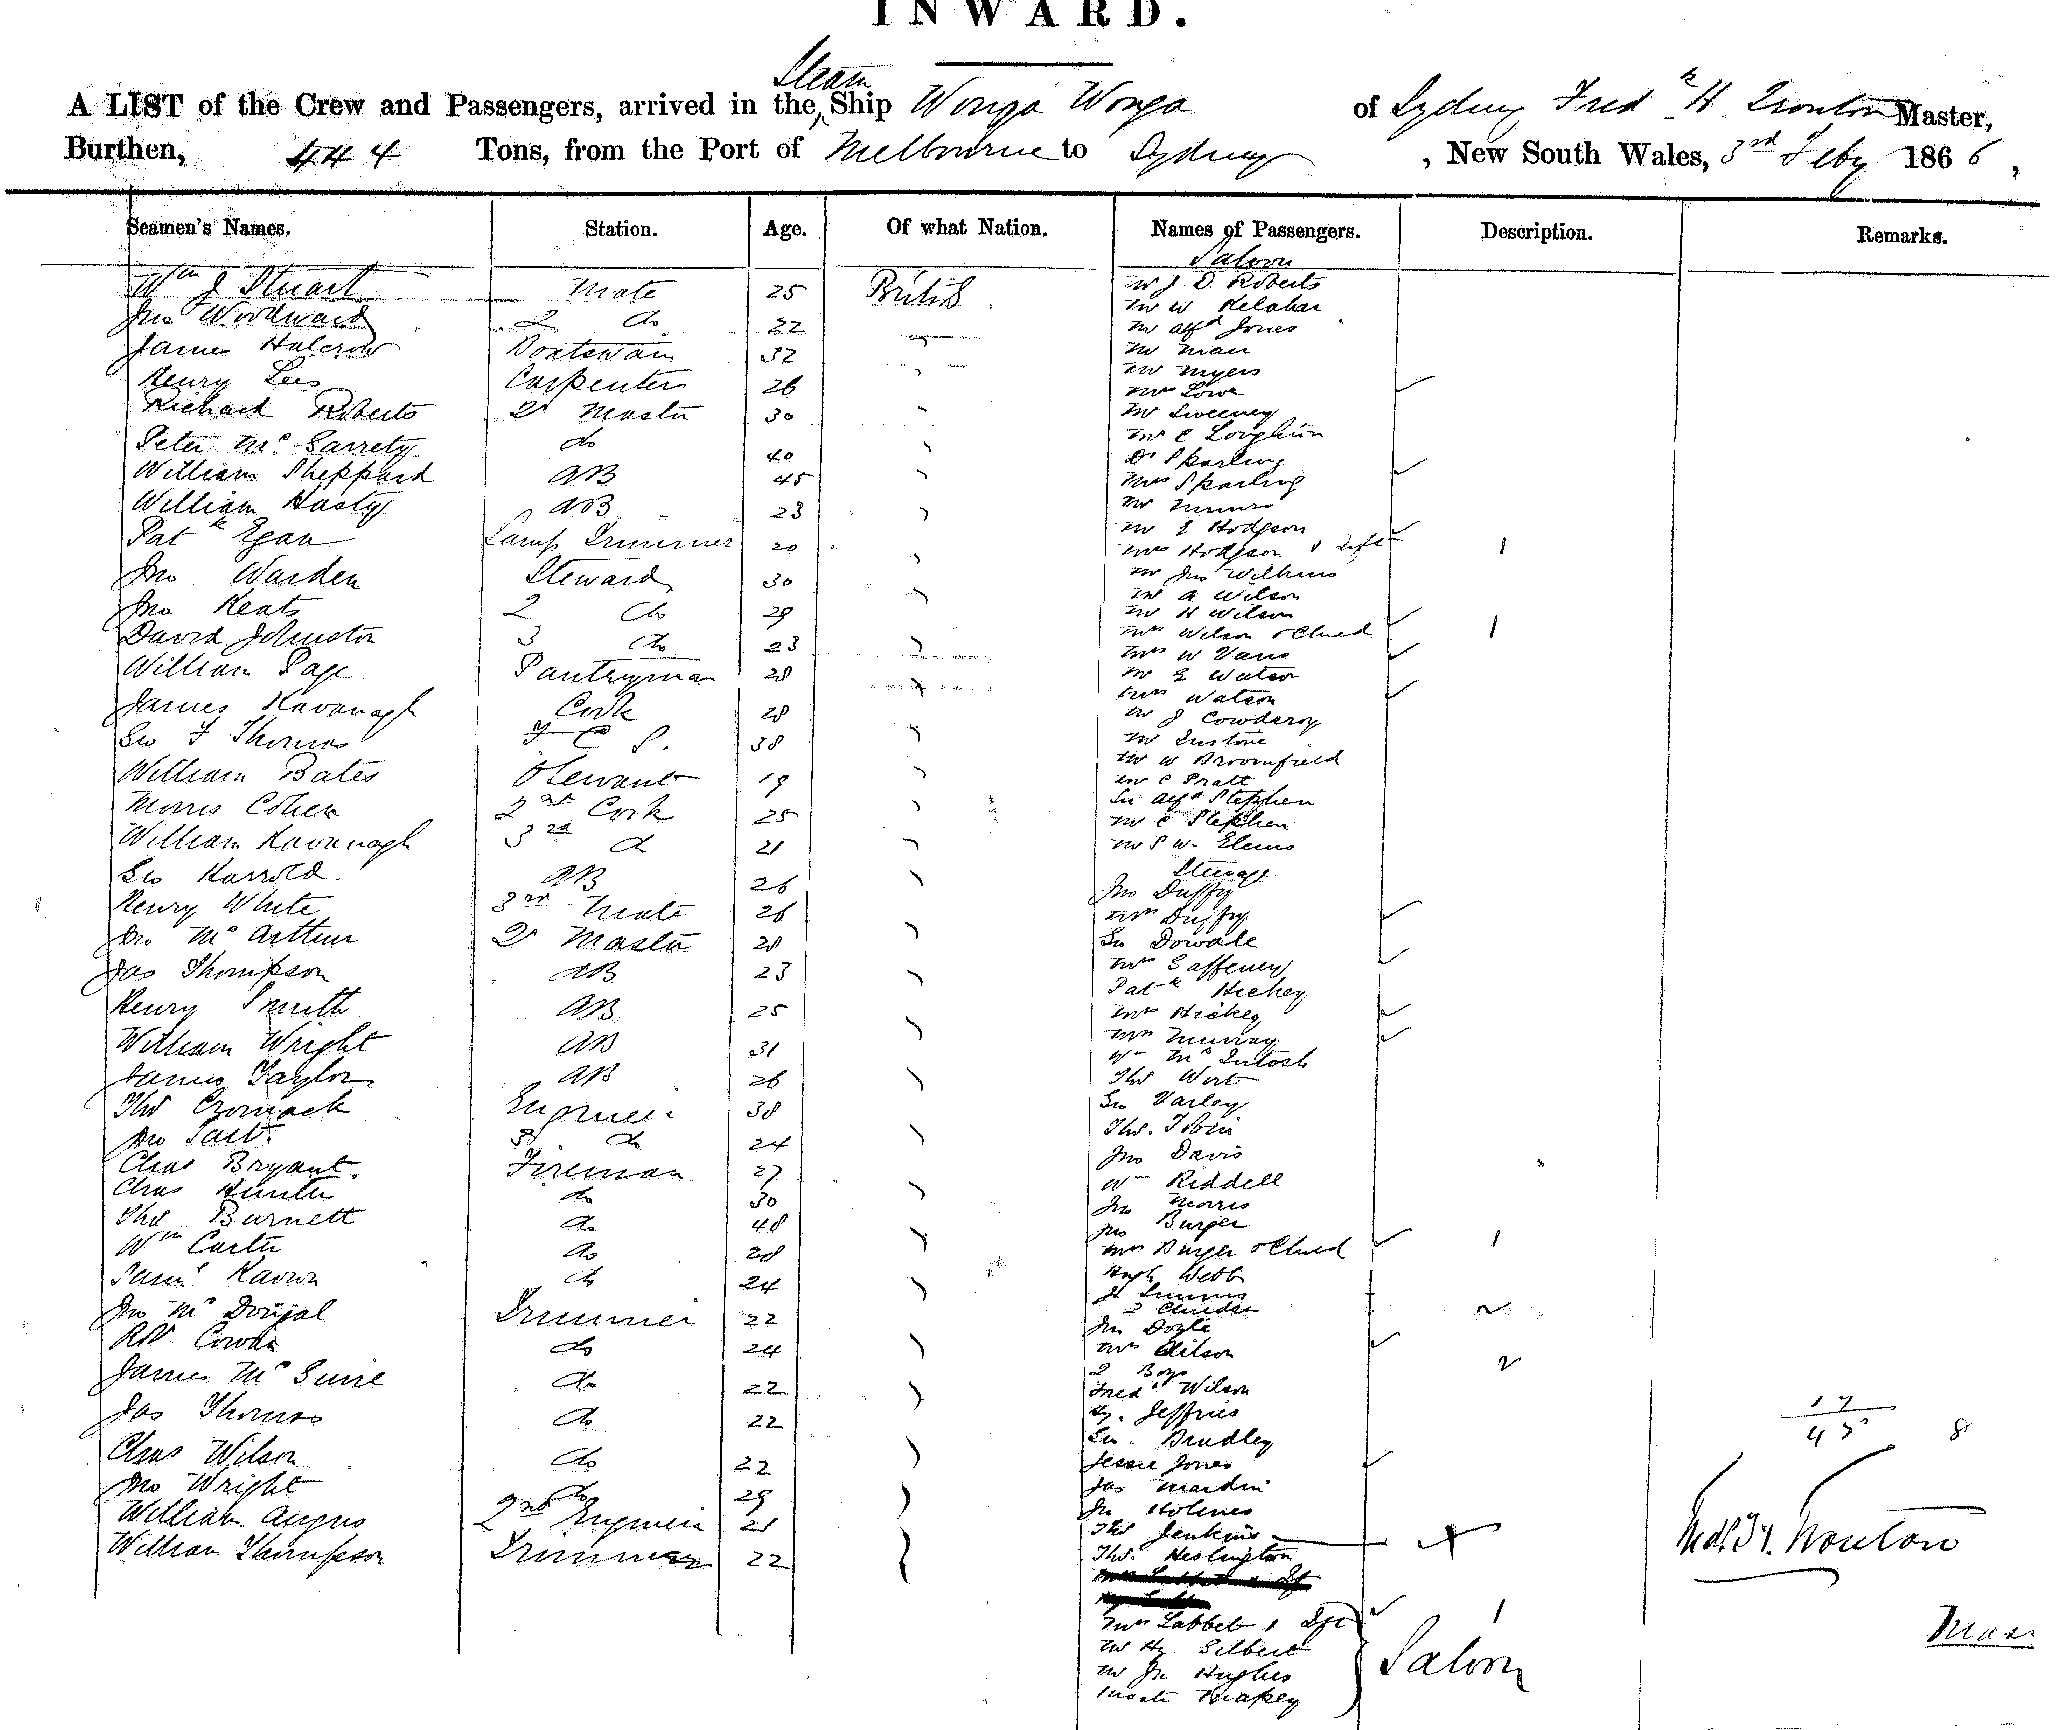 INWARD.
Steam
A LIST of the Crew and Passengers, arrived in the Ship Wonga Wonga of Sydney Fredk H Trouton Master,
Burthen, 444 Tons, from the Port of Melbourne to Sydney, New South Wales, 3rd Feby 1866,
Seamen's Names. Station. Age. Of what Nation. Names of Passengers. Description. Remarks.
Saloon
Wm J Stuart Mate 25 British
Jno Woodward 2 do 22
James Halcrow Boatswain 32
Henry Lees Carpenter 26
Richard Roberts Qr Master 30
Peter Mc Garrety do 40
William Sheppard AB 45
William Hasty AB 23
Patk Egan Lamp Trimmer 20
Jno Warden Steward 30
Jno Keats 2 do 29
David Johnston 3 do 23
William Page Pantryman 28
James Kavanagh Cook 28
Geo F Thomas F C S. 38
William Bates Servant 19
Morris Cohen 2nd Cook 25
William Kavanagh 3rd do 21
Geo Harrold AB 26
Henry White 3rd Mate 26
Jno Mc Arthur Qr Master 28
Jas Thompson AB 23
Henry Smith AB 25
William Wright AB 31
James Taylor AB 26
Thos Cromack Engineer 38
Jno Salt 3 do 24
Chas Bryant Fireman 27
Chas Hunter do 30
Thos Burnett do 48
Wm Carter do 28
Saml do 24
Jno Mc Dougal Trimmer 22
Robt Cowan do 24
James Mc Guire do 22
Jas Thomas do 22
Chas Wilson do 22
Jno Wright do 29
William Angus 2nd Engineer 21
William Thompson Trimmer 22
Mr J D Roberts
Mr W Kelahar
Mr Alfd Jones
Mr Man
Mr Myers
Mrs Lowe
Mr Sweeney
Mr C Loughlin
Dr Sparling
Mrs Sparling
Mr Munro
Mr J Hodgson
Mrs Hodgson & Inft 1
Mr Jno Wilkins
Mr A Wilson
Mr H Wilson
Mrs Wilson & Child 1
Mrs W Vans
Mr G Watson
Mrs Watson
Mr J Cowderoy
Mr Instone
Mr W Broomfield
Mr C Pratt
Sir Alfd Stephen
Mr C Stephen
Mr S W. Elems
Steerage
Jno Duffy
Mrs Duffy
Geo Dowdle
Mrs Gaffeney
Patk Hickey
Mrs Hickey
Mrs Murray
Wm Mc Intosh
Thos West
Geo Varley
Thos. Tobin
Jno Davis
Wm Riddell
Jno Morris
Jno Burger
Mrs Burger & Child 1
Hugh Webb
2 Children 2
Jno Doyle
Mrs Wilson
2 Boys 2
Fredk Wilson
Hy. Jeffries
Geo. Bradley
Jessie Jones
Jas Mardin
Jno Holmes
Thos Jenkins
Thos. Heslington
Mrs Labbet & Dft 1
Mr Hy Gilbert
Mr Jno Hughes
Saloon
17
45 8
Fredk H. Trouton